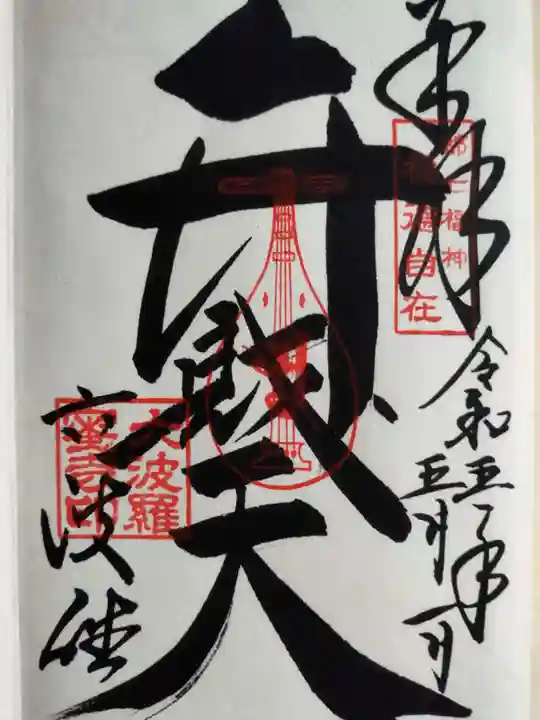 奉拝
都七福神
福徳自在
令和五年
五月一日
弁財天
六波羅
蜜寺印
六波羅